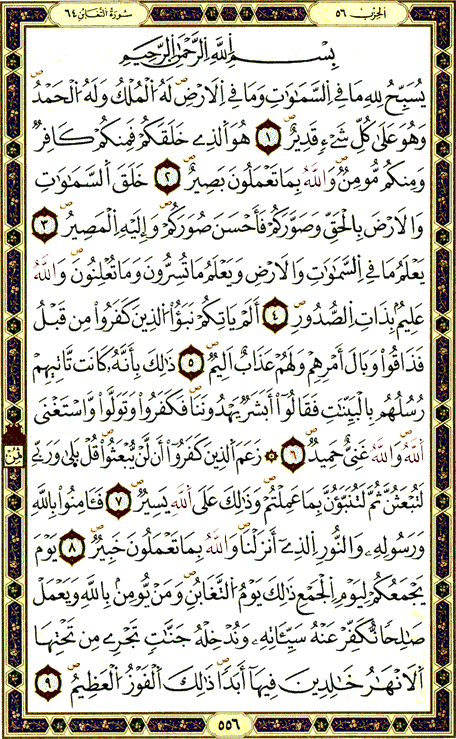 الحِزْبُ ٥٦
سُورَةُ التَّغَابُنِ ٦٤
بِسْمِ اللَّهِ الرَّحْمَٰنِ الرَّحِيمِ
يُسَبِّحُ لِلهِ مَا فِي السَّمَٰوَٰتِ وَمَا فِي الَارْضِ لَهُ الْمُلْكُ وَلَهُ الْحَمْدُ
وَهُوَ عَلَىٰ كُلِّ شَيْءٍ قَدِيرٌ ١ هُوَ الَّذِي خَلَقَكُمْ فَمِنكُمْ كَافِرٌ
وَمِنكُم مُّومِنٌ وَاللَّهُ بِمَا تَعْمَلُونَ بَصِيرٌ ٢ خَلَقَ السَّمَٰوَٰتِ
وَالَارْضَ بِالْحَقِّ وَصَوَّرَكُمْ فَأَحْسَنَ صُوَرَكُمْ وَإِلَيْهِ الْمَصِيرُ ٣
يَعْلَمُ مَا فِي السَّمَٰوَٰتِ وَالَارْضِ وَيَعْلَمُ مَا تُسِرُّونَ وَمَا تُعْلِنُونَ وَاللَّهُ
عَلِيمٌ بِذَاتِ الصُّدُورِ ٤ أَلَمْ يَاتِكُمْ نَبَؤُا الَّذِينَ كَفَرُوا مِن قَبْلُ
فَذَاقُوا وَبَالَ أَمْرِهِمْ وَلَهُمْ عَذَابٌ الِيمٌ ٥ ذَٰلِكَ بِأَنَّهُ كَانَت تَّاتِيهِمْ
رُسُلُهُم بِالْبَيِّنَٰتِ فَقَالُوا أَبَشَرٌ يَهْدُونَنَا فَكَفَرُوا وَتَوَلَّوا وَّاسْتَغْنَى
اللَّهُ وَاللَّهُ غَنِيٌّ حَمِيدٌ ٦ ۞ زَعَمَ الَّذِينَ كَفَرُوا أَن لَّنْ يُّبْعَثُوا قُلْ بَلَىٰ وَرَبِّي
ثُمُن
لَتُبْعَثُنَّ ثُمَّ لَتُنَبَّؤُنَّ بِمَا عَمِلْتُمْ وَذَٰلِكَ عَلَى اللَّهِ يَسِيرٌ ٧ فَـَٔامِنُوا بِاللَّهِ
وَرَسُولِهِ وَالنُّورِ الَّذِي أَنزَلْنَا وَاللَّهُ بِمَا تَعْمَلُونَ خَبِيرٌ ٨ يَوْمَ
يَجْمَعُكُمْ لِيَوْمِ الْجَمْعِ ذَٰلِكَ يَوْمُ التَّغَابُنِ وَمَنْ يُّومِنْ بِاللَّهِ وَيَعْمَلْ
صَٰلِحًا نُّكَفِّرْ عَنْهُ سَيِّـَٔاتِهِ وَنُدْخِلْهُ جَنَّٰتٍ تَجْرِي مِن تَحْتِهَا
الَانْهَٰرُ خَٰلِدِينَ فِيهَا أَبَدًا ذَٰلِكَ الْفَوْزُ الْعَظِيمُ ٩
٥٥٦